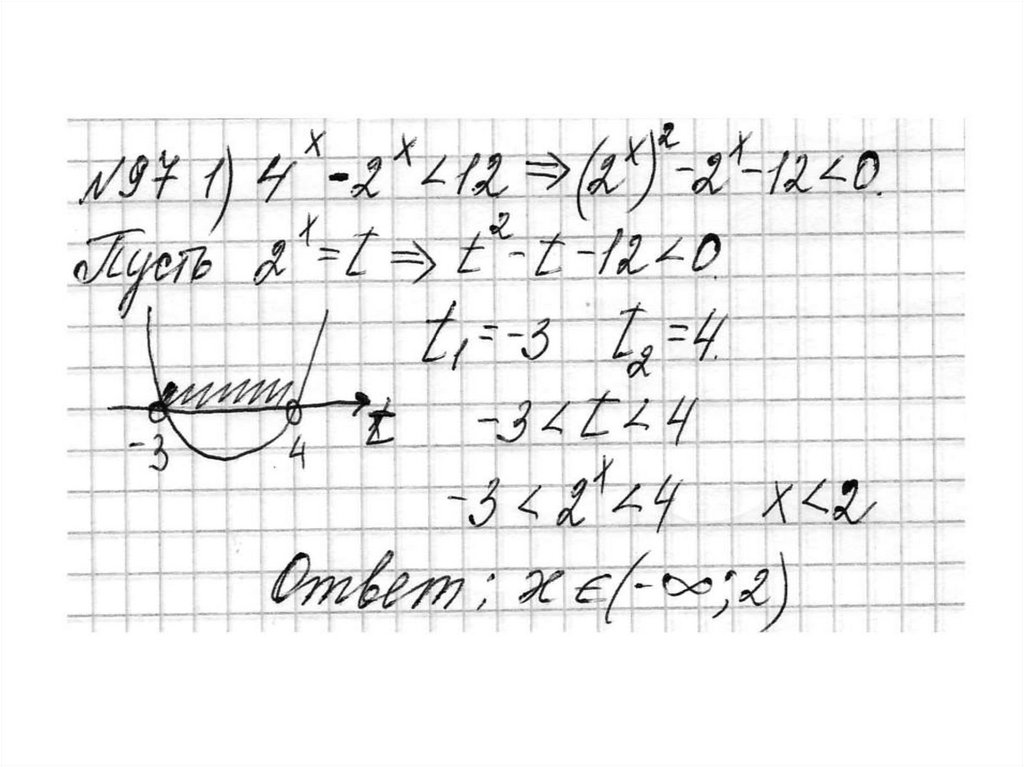 №97 1) 4^x - 2^x < 12 ⇒ (2^x)^2 - 2^x - 12 < 0.
Пусть 2^x = t ⇒ t^2 - t - 12 < 0.
t₁ = -3 t₂ = 4.
-3 4 t
-3 < t < 4
-3 < 2^x < 4 x < 2
Ответ: x ∈ (-∞; 2)